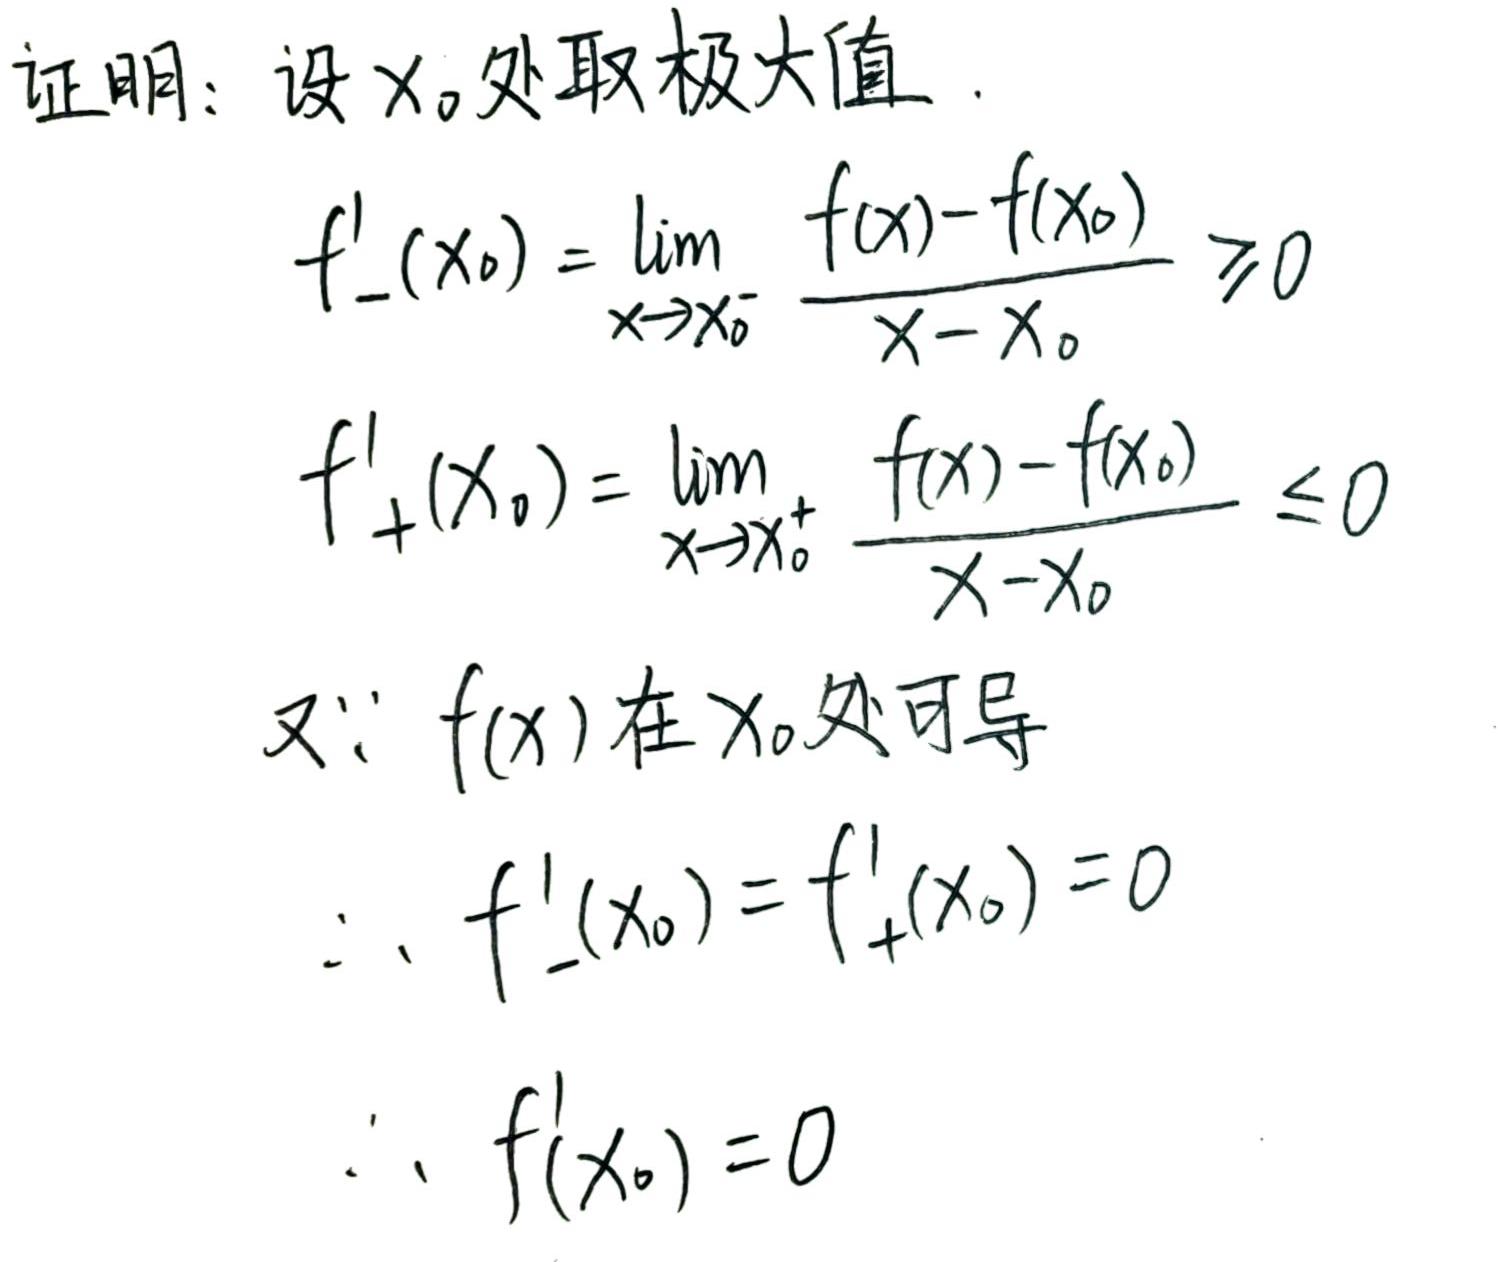 证明: 设 x₀ 处取极大值.
f'₋(x₀) = lim_{x→x₀⁻} (f(x)-f(x₀))/(x-x₀) ⩾ 0
f'₊(x₀) = lim_{x→x₀⁺} (f(x)-f(x₀))/(x-x₀) ≤ 0
又∵ f(x) 在 x₀ 处可导
∴ f'₋(x₀) = f'₊(x₀) = 0
∴ f'(x₀) = 0